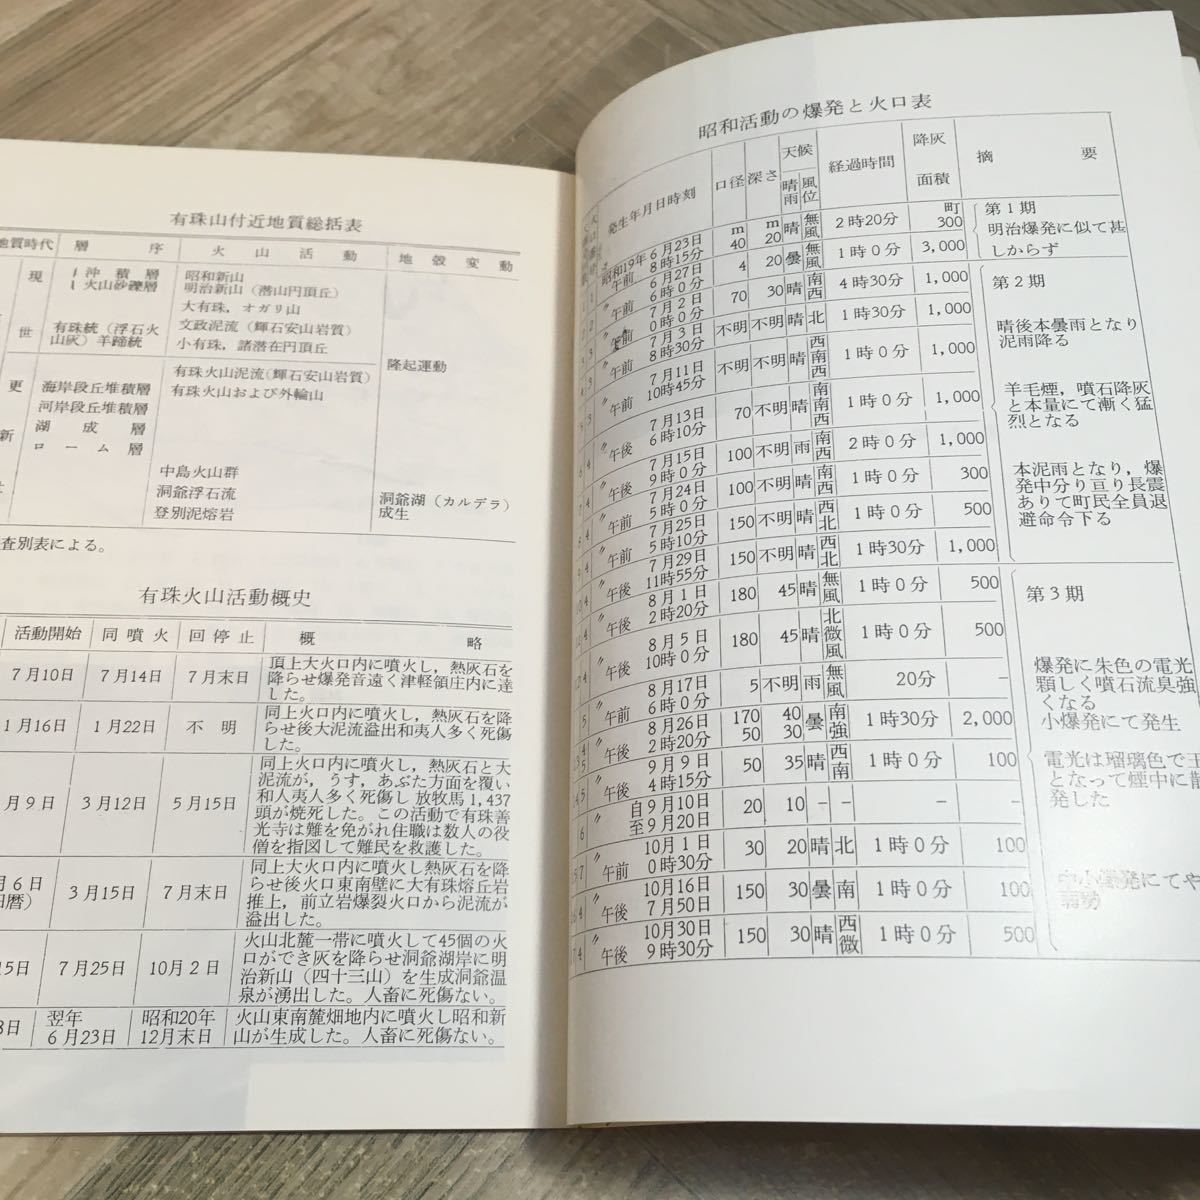 有珠山付近地質総括表
地質時代 層序 火山活動 地殻変動
現 沖積層 昭和新山
火山砂礫層 明治新山(潜山円頂丘)
大有珠,オガリ山
世 有珠統(浮石火 文政泥流(輝石安山岩質)
山灰)羊蹄統 小有珠,諸潜在円頂丘
隆起運動
有珠火山泥流(輝石安山岩質)
更 海岸段丘堆積層 有珠火山および外輪山
河岸段丘堆積層
新 湖成層
ローム層
中島火山群
洞爺浮石流 洞爺湖(カルデラ)
登別泥熔岩 成生
査別表による。
有珠火山活動概史
活動開始 同噴火 回停止 概略
7月10日 7月14日 7月末日 頂上大火口内に噴火し,熱灰石を
降らせ爆発音遠く津軽領庄内に達
した。
1月16日 1月22日 不明 同上火口内に噴火し,熱灰石を降
らせ後大泥流溢出和夷人多く死傷
した。
月9日 3月12日 5月15日 同上火口内に噴火し,熱灰石と大
泥流が,うす,あぶた方面を覆い
和人夷人多く死傷し 放牧馬1,437
頭が焼死した。この活動で有珠善
光寺は難を免がれ住職は数人の役
僧を指図して難民を救護した。
月6日 3月15日 7月末日 同上大火口内に噴火し熱灰石を降
旧暦) らせ後火口東南壁に大有珠熔丘岩
推上,前立岩爆裂火口から泥流が
溢出した。
15日 7月25日 10月2日 火山北麓一帯に噴火して45個の火
口ができ灰を降らせ洞爺湖岸に明
治新山(四十三山)を生成洞爺温
泉が湧出した。人畜に死傷ない。
8日 翌年 昭和20年 火山東南麓畑地内に噴火し昭和新
6月23日 12月末日 山が生成した。人畜に死傷ない。
昭和活動の爆発と火口表
発生年月日時刻 口径 深さ 天候 晴雨 風位 経過時間 降灰面積 摘要
昭和19年6月23日 午前8時15分 m 40 m 20 晴 無風 2時20分 町 300
〃 6月27日 午前6時0分 4 20 曇 無風 1時0分 3,000
〃 7月2日 午前0時0分 70 30 晴 南西 4時30分 1,000
〃 7月3日 午前8時30分 不明 不明 晴 北 1時30分 1,000
〃 7月11日 午前10時45分 不明 不明 晴 西南西 1時0分 1,000
〃 7月13日 午後6時10分 70 不明 晴 南南西 1時0分 1,000
〃 7月15日 午後9時0分 100 不明 雨 南西 2時0分 1,000
〃 7月24日 午前5時0分 100 不明 晴 南西 1時0分 300
〃 7月25日 午前5時10分 150 不明 晴 西北 1時0分 500
〃 7月29日 午後11時55分 150 不明 晴 西北 1時30分 1,000
〃 8月1日 午後2時20分 180 45 晴 無風 1時0分 500
〃 8月5日 午後10時0分 180 45 晴 北微風 1時0分 500
〃 8月17日 午前6時0分 5 不明 雨 無風 20分 -
〃 8月26日 午後2時20分 170 50 40 30 曇 南強 1時30分 2,000
〃 9月9日 午後4時15分 50 35 晴 西南 1時0分 100
〃 自9月10日 至9月20日 20 10 - - - -
〃 10月1日 午前0時30分 30 20 晴 北 1時0分 100
〃 10月16日 午後7時50分 150 30 曇 南 1時0分 100
〃 10月30日 午後9時30分 150 30 晴 西微 1時0分 500
第1期
明治爆発に似て甚
しからず
第2期
晴後本曇雨となり
泥雨降る
羊毛煙,噴石降灰
と本量にて漸く猛
烈となる
本泥雨となり,爆
発中分り亘り長震
ありて町民全員退
避命令下る
第3期
爆発に朱色の電光
顆しく噴石流臭強
くなる
小爆発にて発生
電光は瑠璃色で玉
となって煙中に散
発した
中小爆発にてや
弱勢